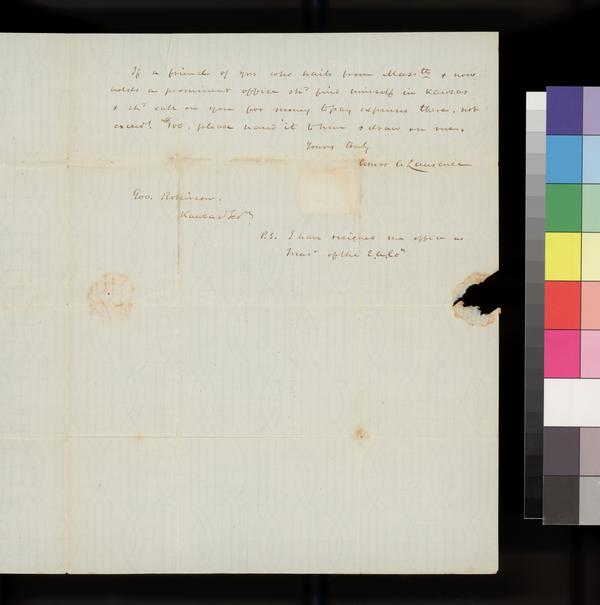 If a friend of yrs who hails from Masstts & now
holds a prominent office shd find himself in Kanzas
& shd call on you for money to pay expenses there, not
exceedg $700. please hand it to him & draw on me.
Yours truly
Amos A Lawrence
Gov. Robinson.
Kanzas Tery
P.S. I have resigned my office as
Treasr of the E. A. Co.